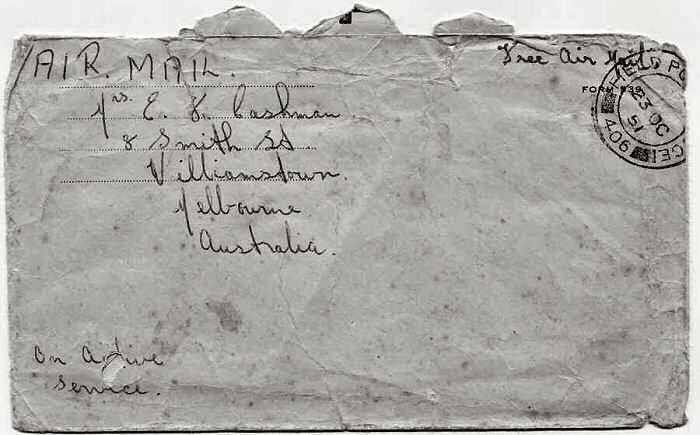 AIR. MAIL.
Free Air Mail
FORM 539
FIELD PO
23 OC
51
406
Mrs. E. V. Cashman
8 Smith St
Williamstown.
Melbourne
Australia.
On Active
Service.